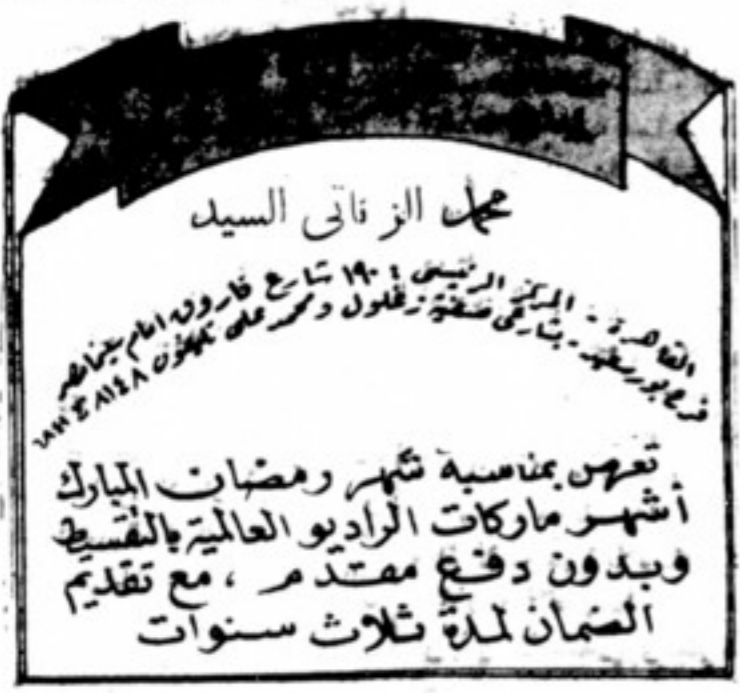 محمد الزناتى السيد
القاهرة - المركز الرئيسى : ١٩٠ شارع فاروق امام سينما مصر
فرع بور سعيد - بشارعى صفية زغلول ومحمد على تليفون ٨١٤٨
تعرض بمناسبة شهر رمضان المبارك
أشهر ماركات الراديو العالمية بالتقسيط
وبدون دفع مقدم ، مع تقديم
الضمان لمدة ثلاث سنوات